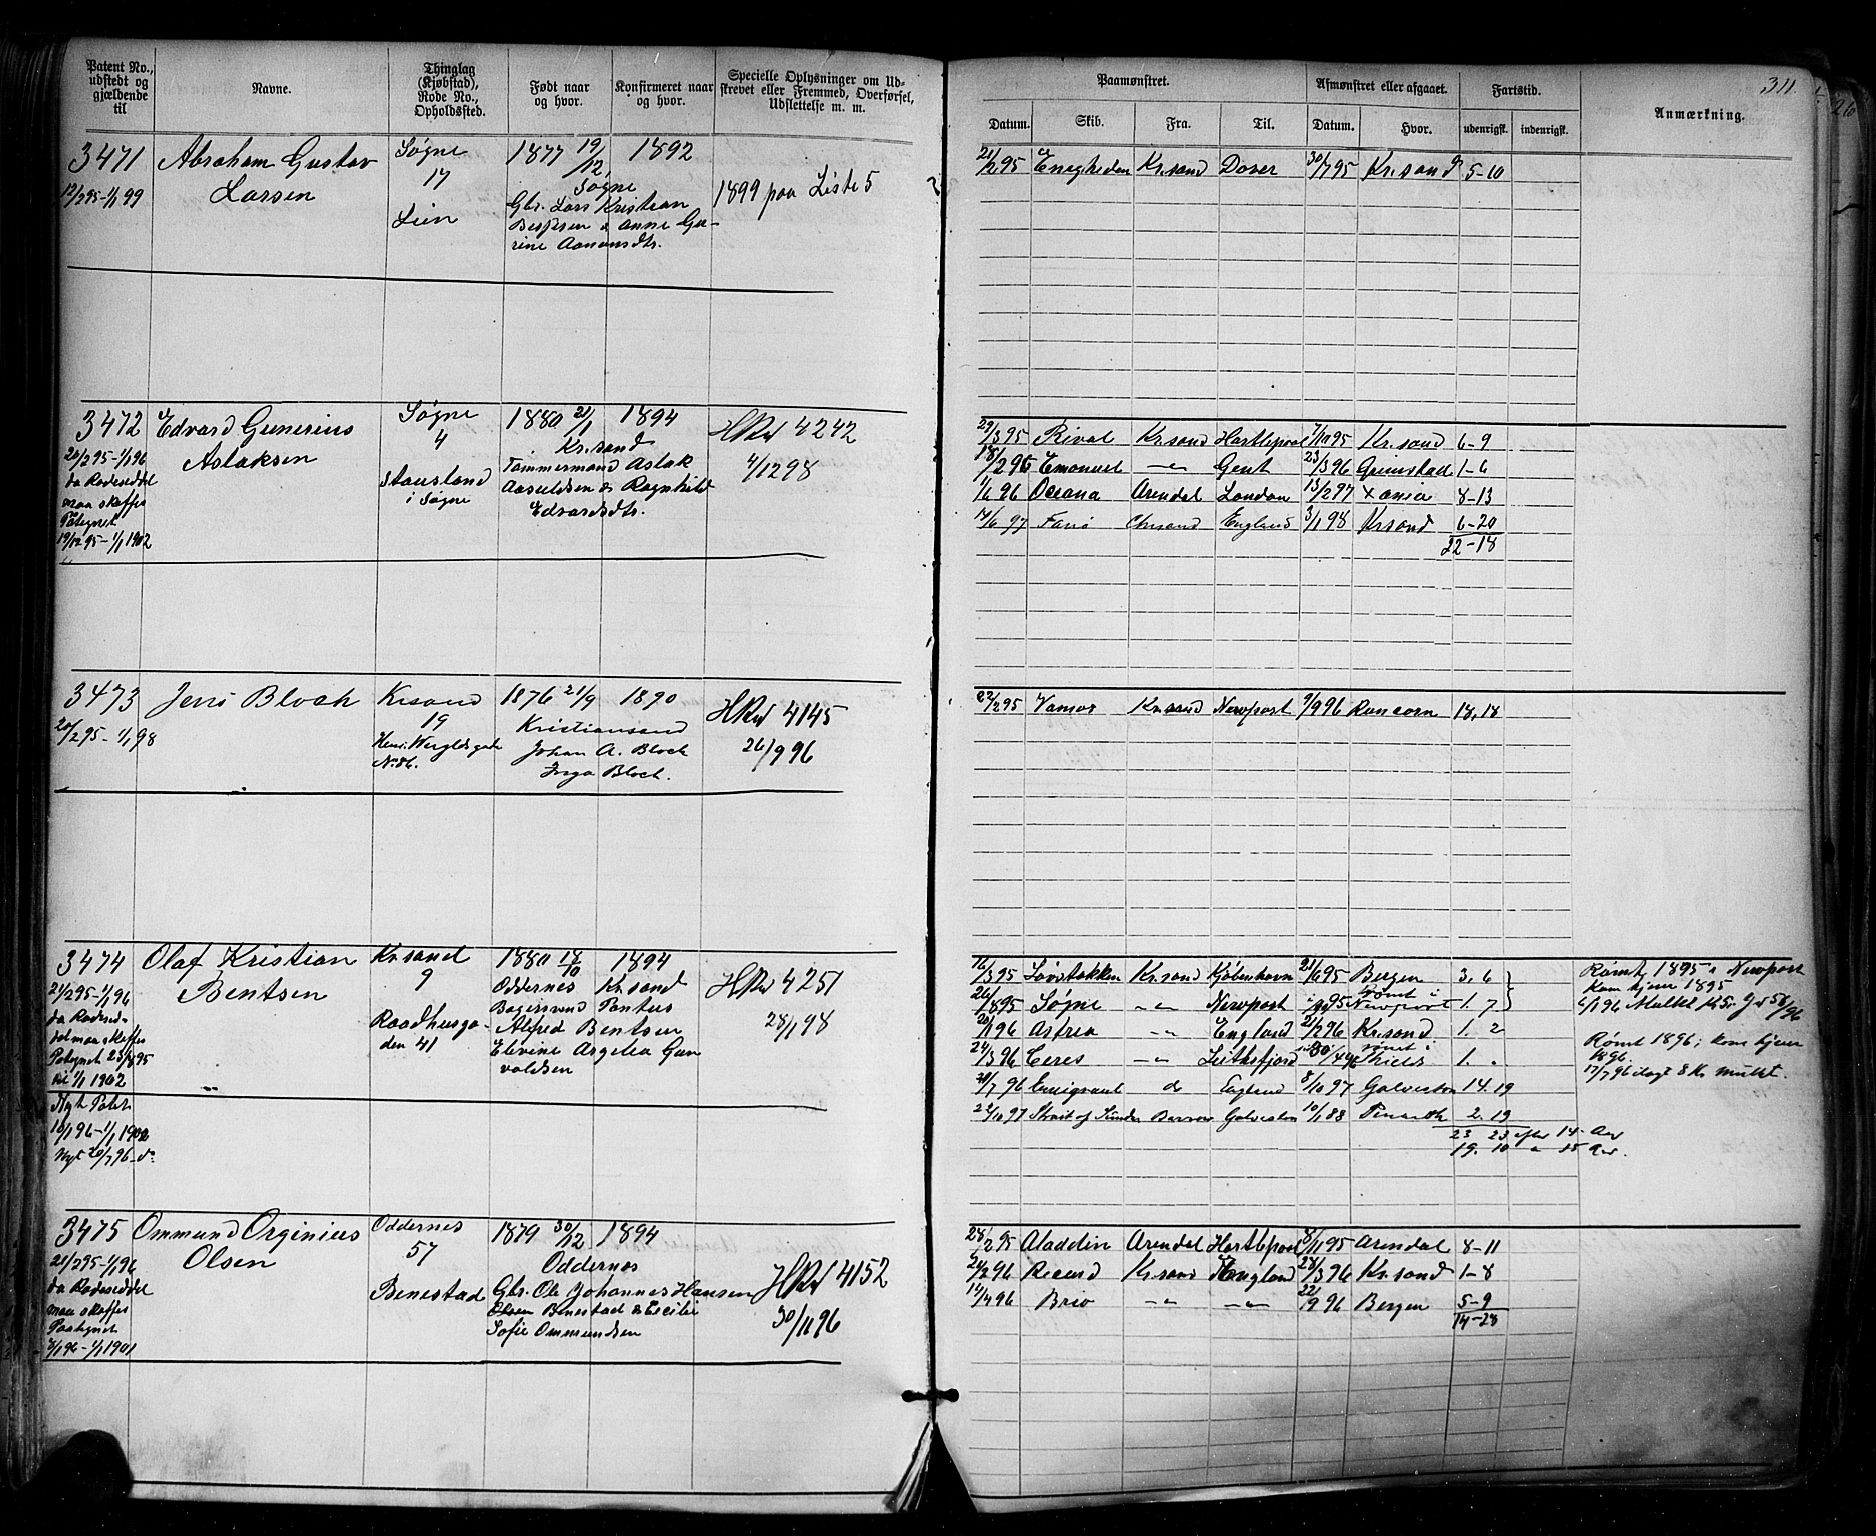 311
Patent No., udstedt og gjældende til
Navne.
Thinglag (Kjøbstad), Rode No., Opholdssted.
Født naar og hvor.
Konfirmeret naar og hvor.
Specielle Oplysninger om Udskrevet eller Fremmed, Overførsel, Udslettelse m. m.
Paamønstret.
Datum.
Skib.
Fra.
Til.
Afmønstret eller afgaaet.
Datum.
Hvor.
Fartstid.
udenrigsk.
indenrigsk.
Anmærkning.
3471
12/2 95-1/1 99
Abraham Gustav
Larsen
Søgne
17
Lein
1877 19/12
1892
Søgne
Gbr. Lars Kristian
Bespersen & Anne Gu-
rine Aanunsdtr.
1899 paa Liste 5
21/2 95 Enigheden Kr.sand Dover 30/7 95 Kr.sand 5-10
3472
20/2 95-1/1 96
da Rodeseddel
maa skaffes
Pategnet
19/12 95-1/1 1902
Edvard Gunerius
Aslaksen
Søgne
4
Stausland
i Søgne
1880 21/1
1894
Kr.sand
Tømmermand Aslak
Aasuldsen & Ragnhild
Edvardsdtr.
HRul 4242
4/12 98
29/3 95 Rival Kr.sand Hartlepool 7/10 95 Kr.sand 6-9
18/2 96 Emanuel -"- Gent 23/3 96 Grimstad 1-6
1/6 96 Oceana Arendal London 13/2 97 Xania 8-13
14/6 97 Chrsand England 3/1 98 Kr.sand 6-20
22-18
3473
20/2 95-1/1 98
Jens Bloch
Krsand
19
Henr. Wergelds gade
No 86.
1876 21/9
1890
Kristiansand
Johan A. Bloch
Inga Bloch.
HRul 4145
26/9 96
22/2 95 Vamos Kr.sand Newport 9/9 96 Runcorn 18,18
3474
21/2 95-1/1 96
da Rodesed-
del maa skaffes
Pategnet 23/8 95
til 1/1 1902
Nyt Patent
10/1 96-1/1 1902
Nyt 20/7 96-do
Olaf Kristian
Bentsen
Kr.sand
9
Raadhusga-
den 41
1880 17/10
1894
Oddernes
Kr.sand
Bagersvend Pontus
Alfred Bentsen
Elevine Angelia Gun
valdsen
HRul 4251
28/1 98
16/3 95 Løvstakken Kr.sand Kjøbenhavn 21/6 95 Bergen 3, 6
26/8 95 Søgne -"- Newport i 95 rømt i Newport 1. 7
20/1 96 Astrea -"- England 21/2 96 Kr.sand 1. 2
24/3 96 Ceres -"- Leithsfjord 30/4 96 rømt i Shields 1. "
20/7 96 Emigrant do England 8/10 97 Galveston 14.19
22/10 97 Strait of Sunda Barrow Galveston 10/1 88 Penarth 2.19
23 23 efter 14 Aar
19. 10 " 15 Aar.
Rømt 1895 i Newport
kom hjem 1895
Rømt 1896; kom hjem
1896.
17/7 96 ilagt 8 Kr mulkt.
3475
21/2 95-1/1 96
da Rodeseddel
maa skaffes
Paategnet
2/1 96-1/1 1901
Ommund Orginius
Olsen
Oddernes
57
Benestad
1879 30/12
1894
Oddernes
Gbr. Ole Johannes Hansen
Olsen Benestad & Cecilie
Sofie Ommundsen
HRul 4152
30/11 96
28/2 95 Aladdin Arendal Hartlepool 8/11 95 Arendal 8-11
21/2 96 Record Kr.sand England 28/3 96 Kr.sand 1-8
14/4 96 Brio -"- -"- 22/9 96 Bergen 5-9
14-28